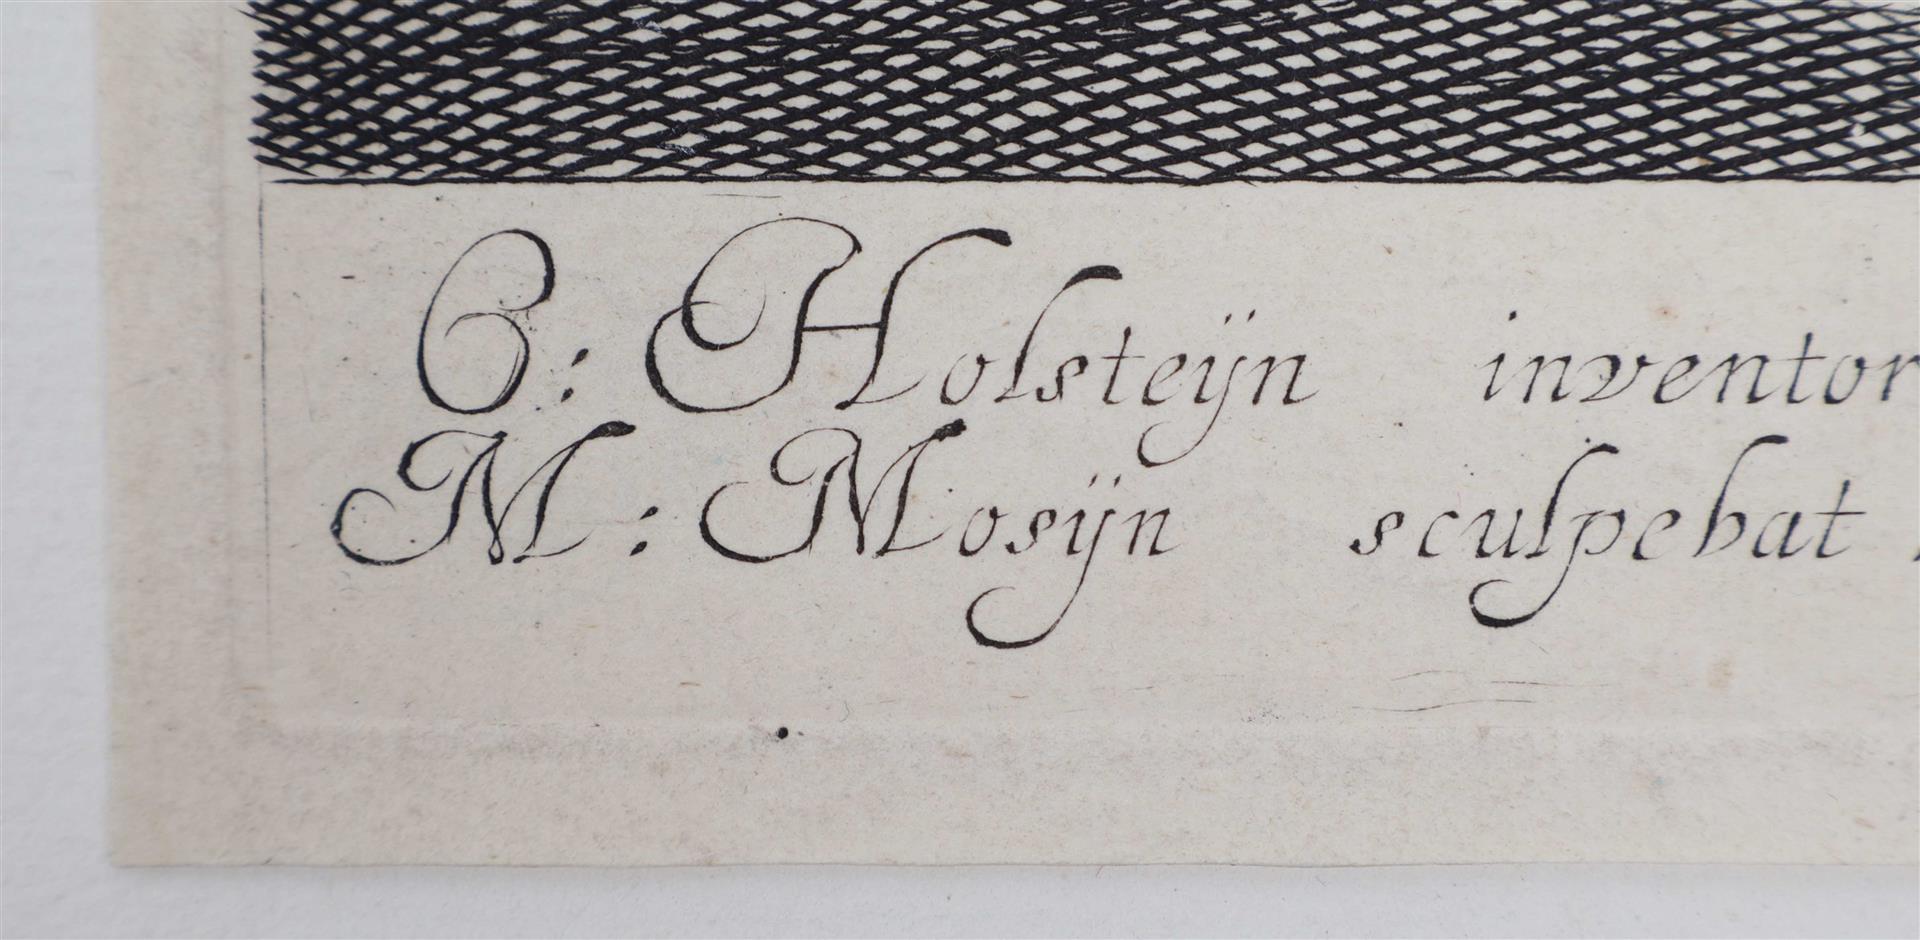 C: Holsteÿn inventor
M: Mosÿn sculpebat